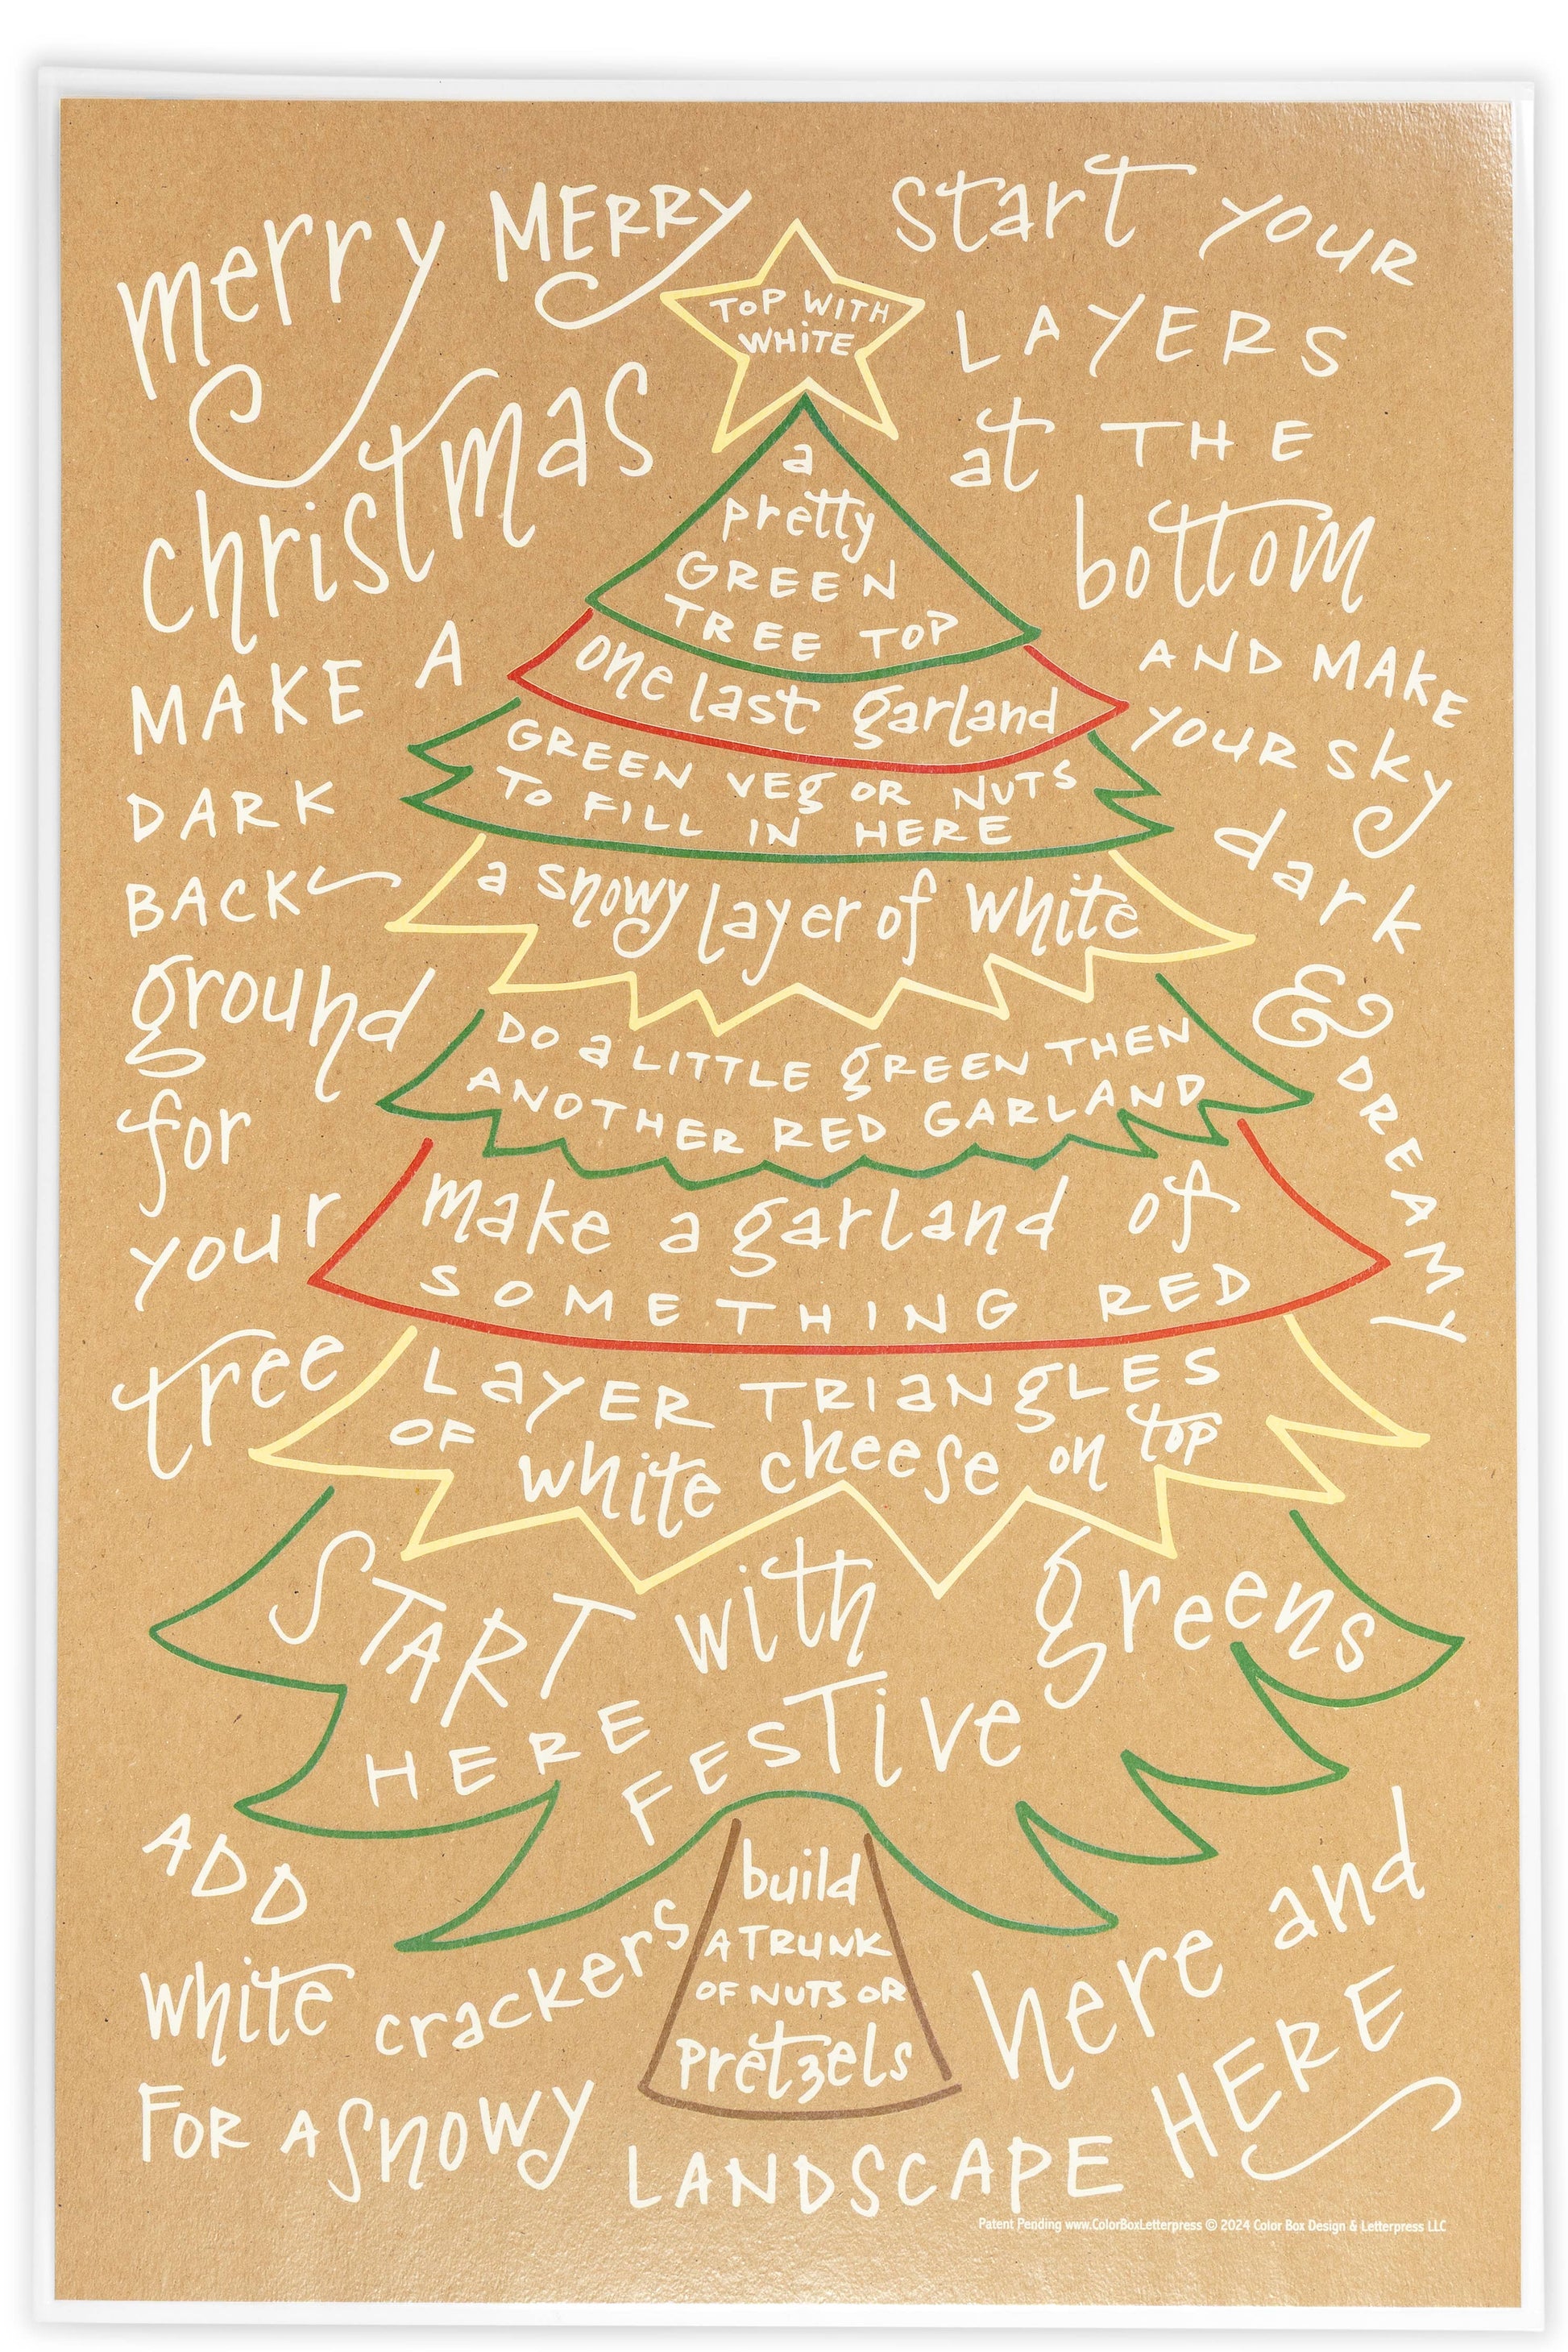 merry MERRY
christmas
MAKE A
DARK
BACK
ground
for
your
tree
start YOUR
LAYERS
at THE
bottom
AND MAKE
YOUR sky
dark
&
DREAMY
TOP WITH
WHITE
a
pretty
GREEN
TREE TOP
one last garland
GREEN VEg OR NUTS
TO FILL IN HERE
a snowy layer of white
DO a LITTLE gREEN THEN
ANOTHER RED GARLAND
make a garland of
SOMETHING RED
LaYER TRIaNgLES
OF white cheese on top
START with greens
HERE FESTive
build
A TRUNK
OF NUTS OR
pretzels
ADD
white crackers here and
FOR A snowy LANDSCAPE HERE
Patent Pending www.ColorBoxLetterpress © 2024 Color Box Design & Letterpress LLC